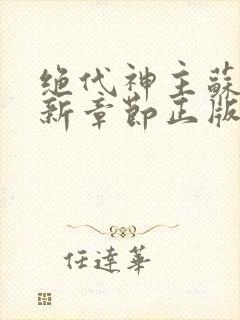 绝代神主蘇
新章節正版
任達華